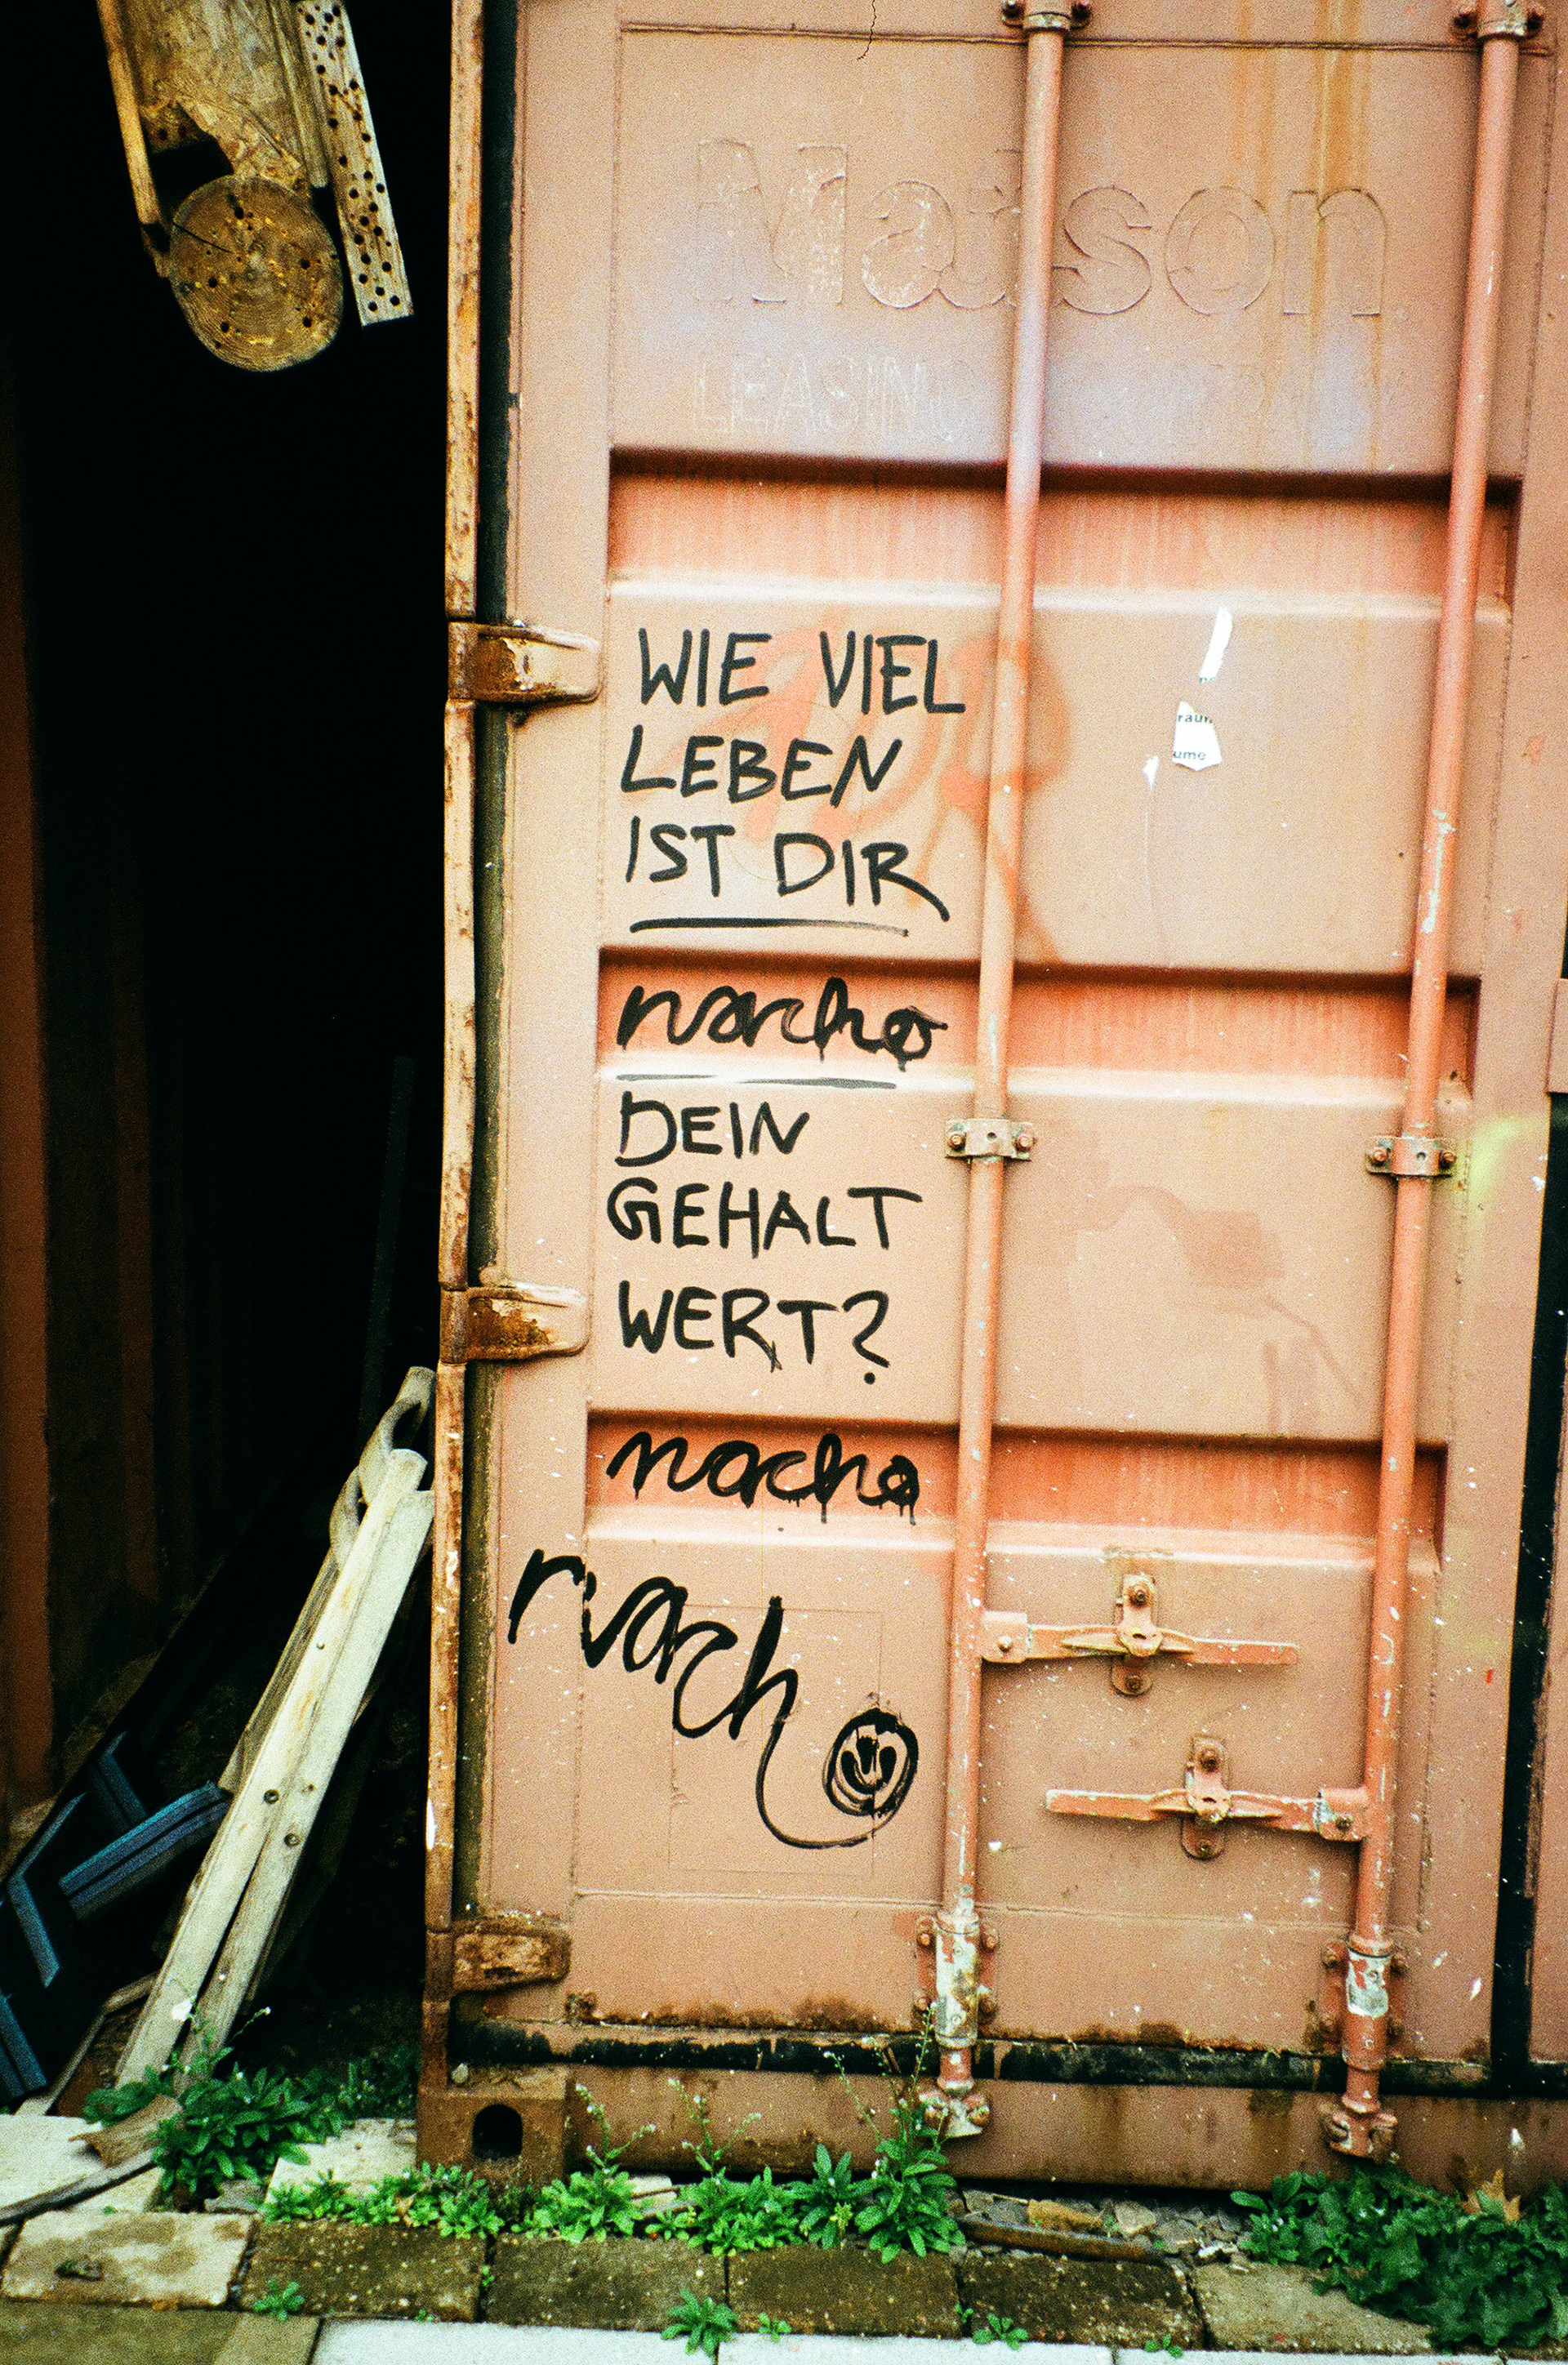 Matson
LEASING
WIE VIEL
LEBEN
IST DIR
nacho
DEIN
GEHALT
WERT?
nacho
nacho
raum
ume